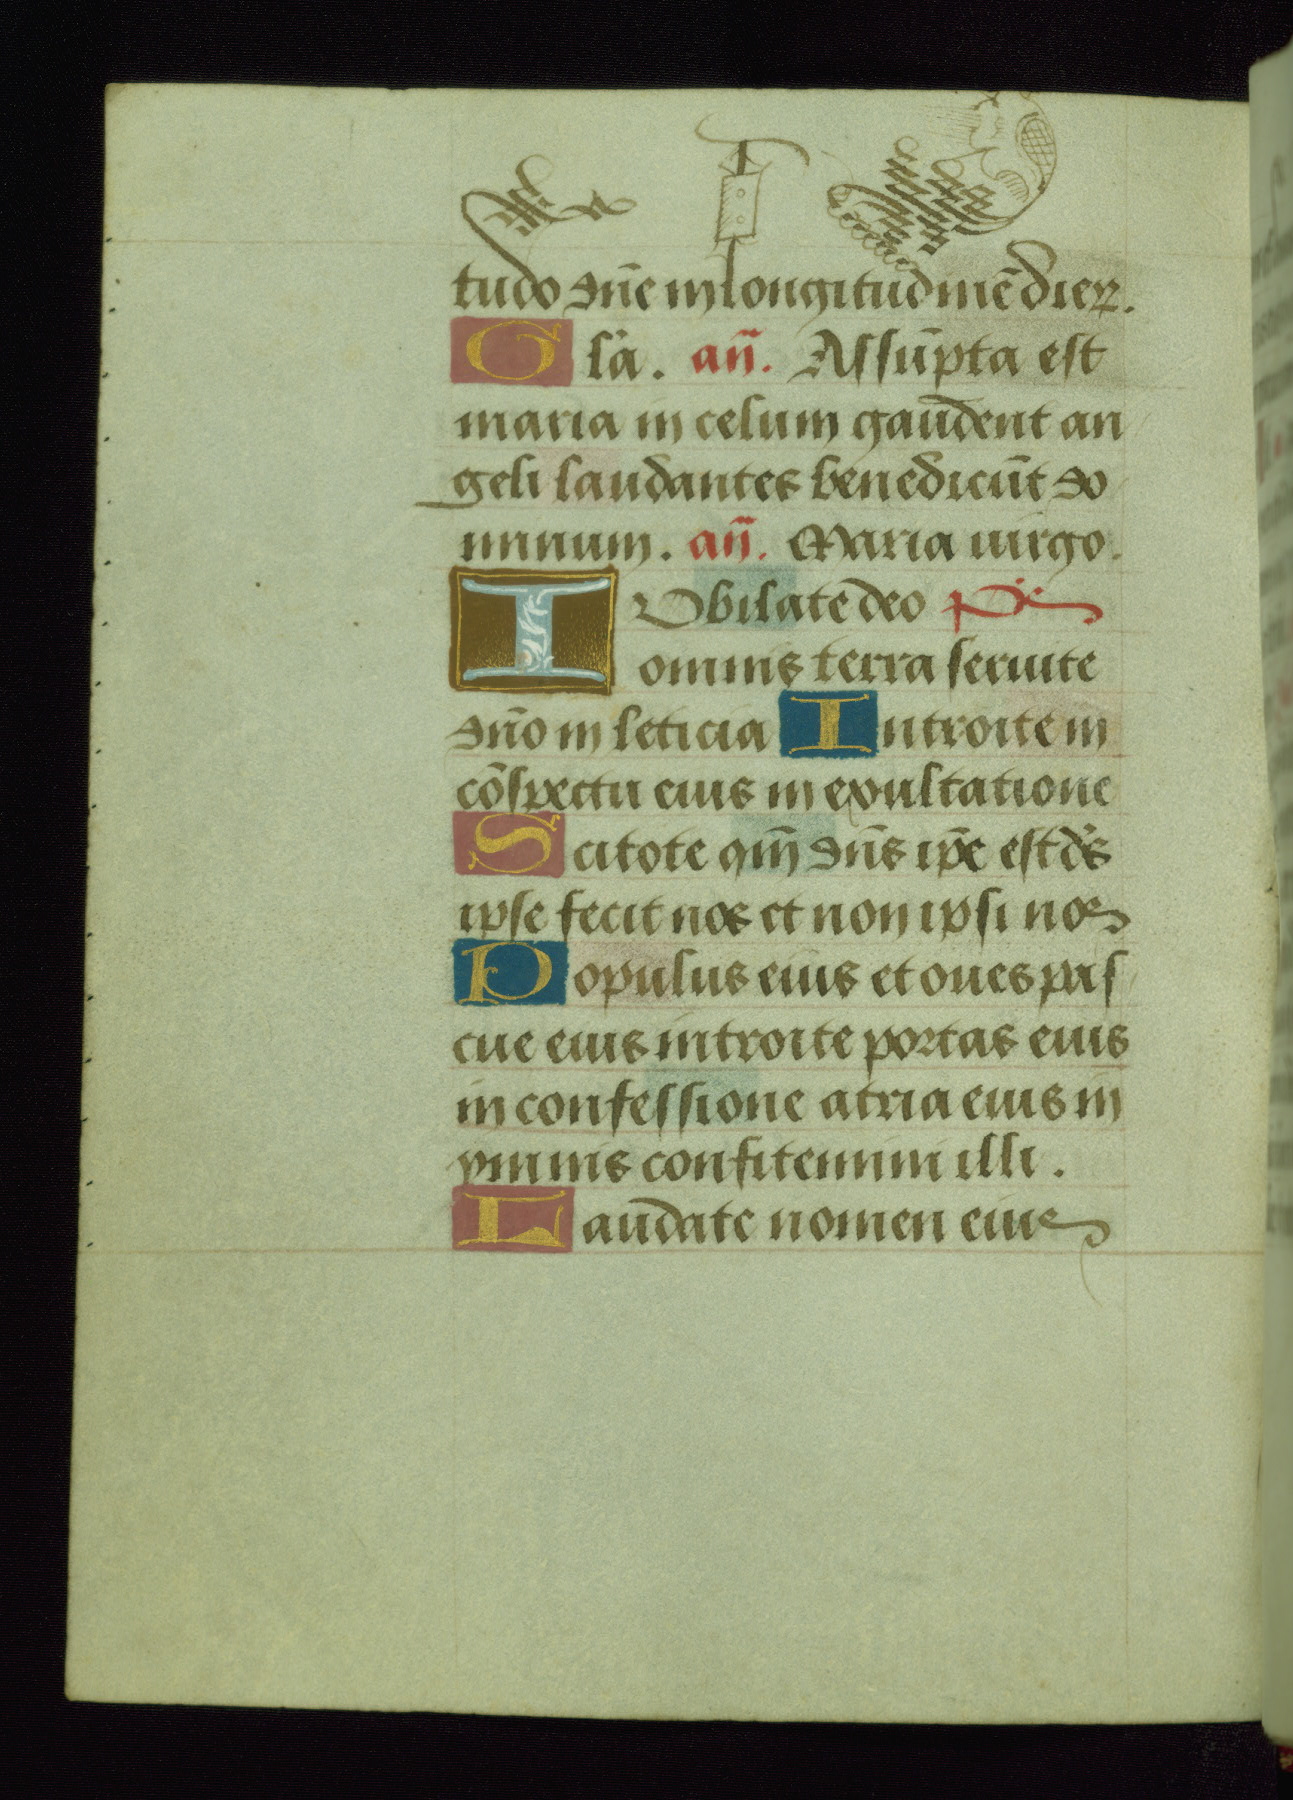 tudo dñe in longitudinē dieꝝ.
Gla. añ. Assūpta est
maria in celum gaudent an
geli laudantes benedicūt do
minum. añ. Maria uirgo.
Iubilate deo ps
omnis terra seruite
dño in leticia Introite in
cōspectu eius in exultatione
Scitote qm̄ dñs ipē est ds
ipse fecit nos et non ipsi nos
Populus eius et oues pas
cue eius introite portas eius
in confessione atria eius in
ymnis confitemini illi.
Laudate nomen eius